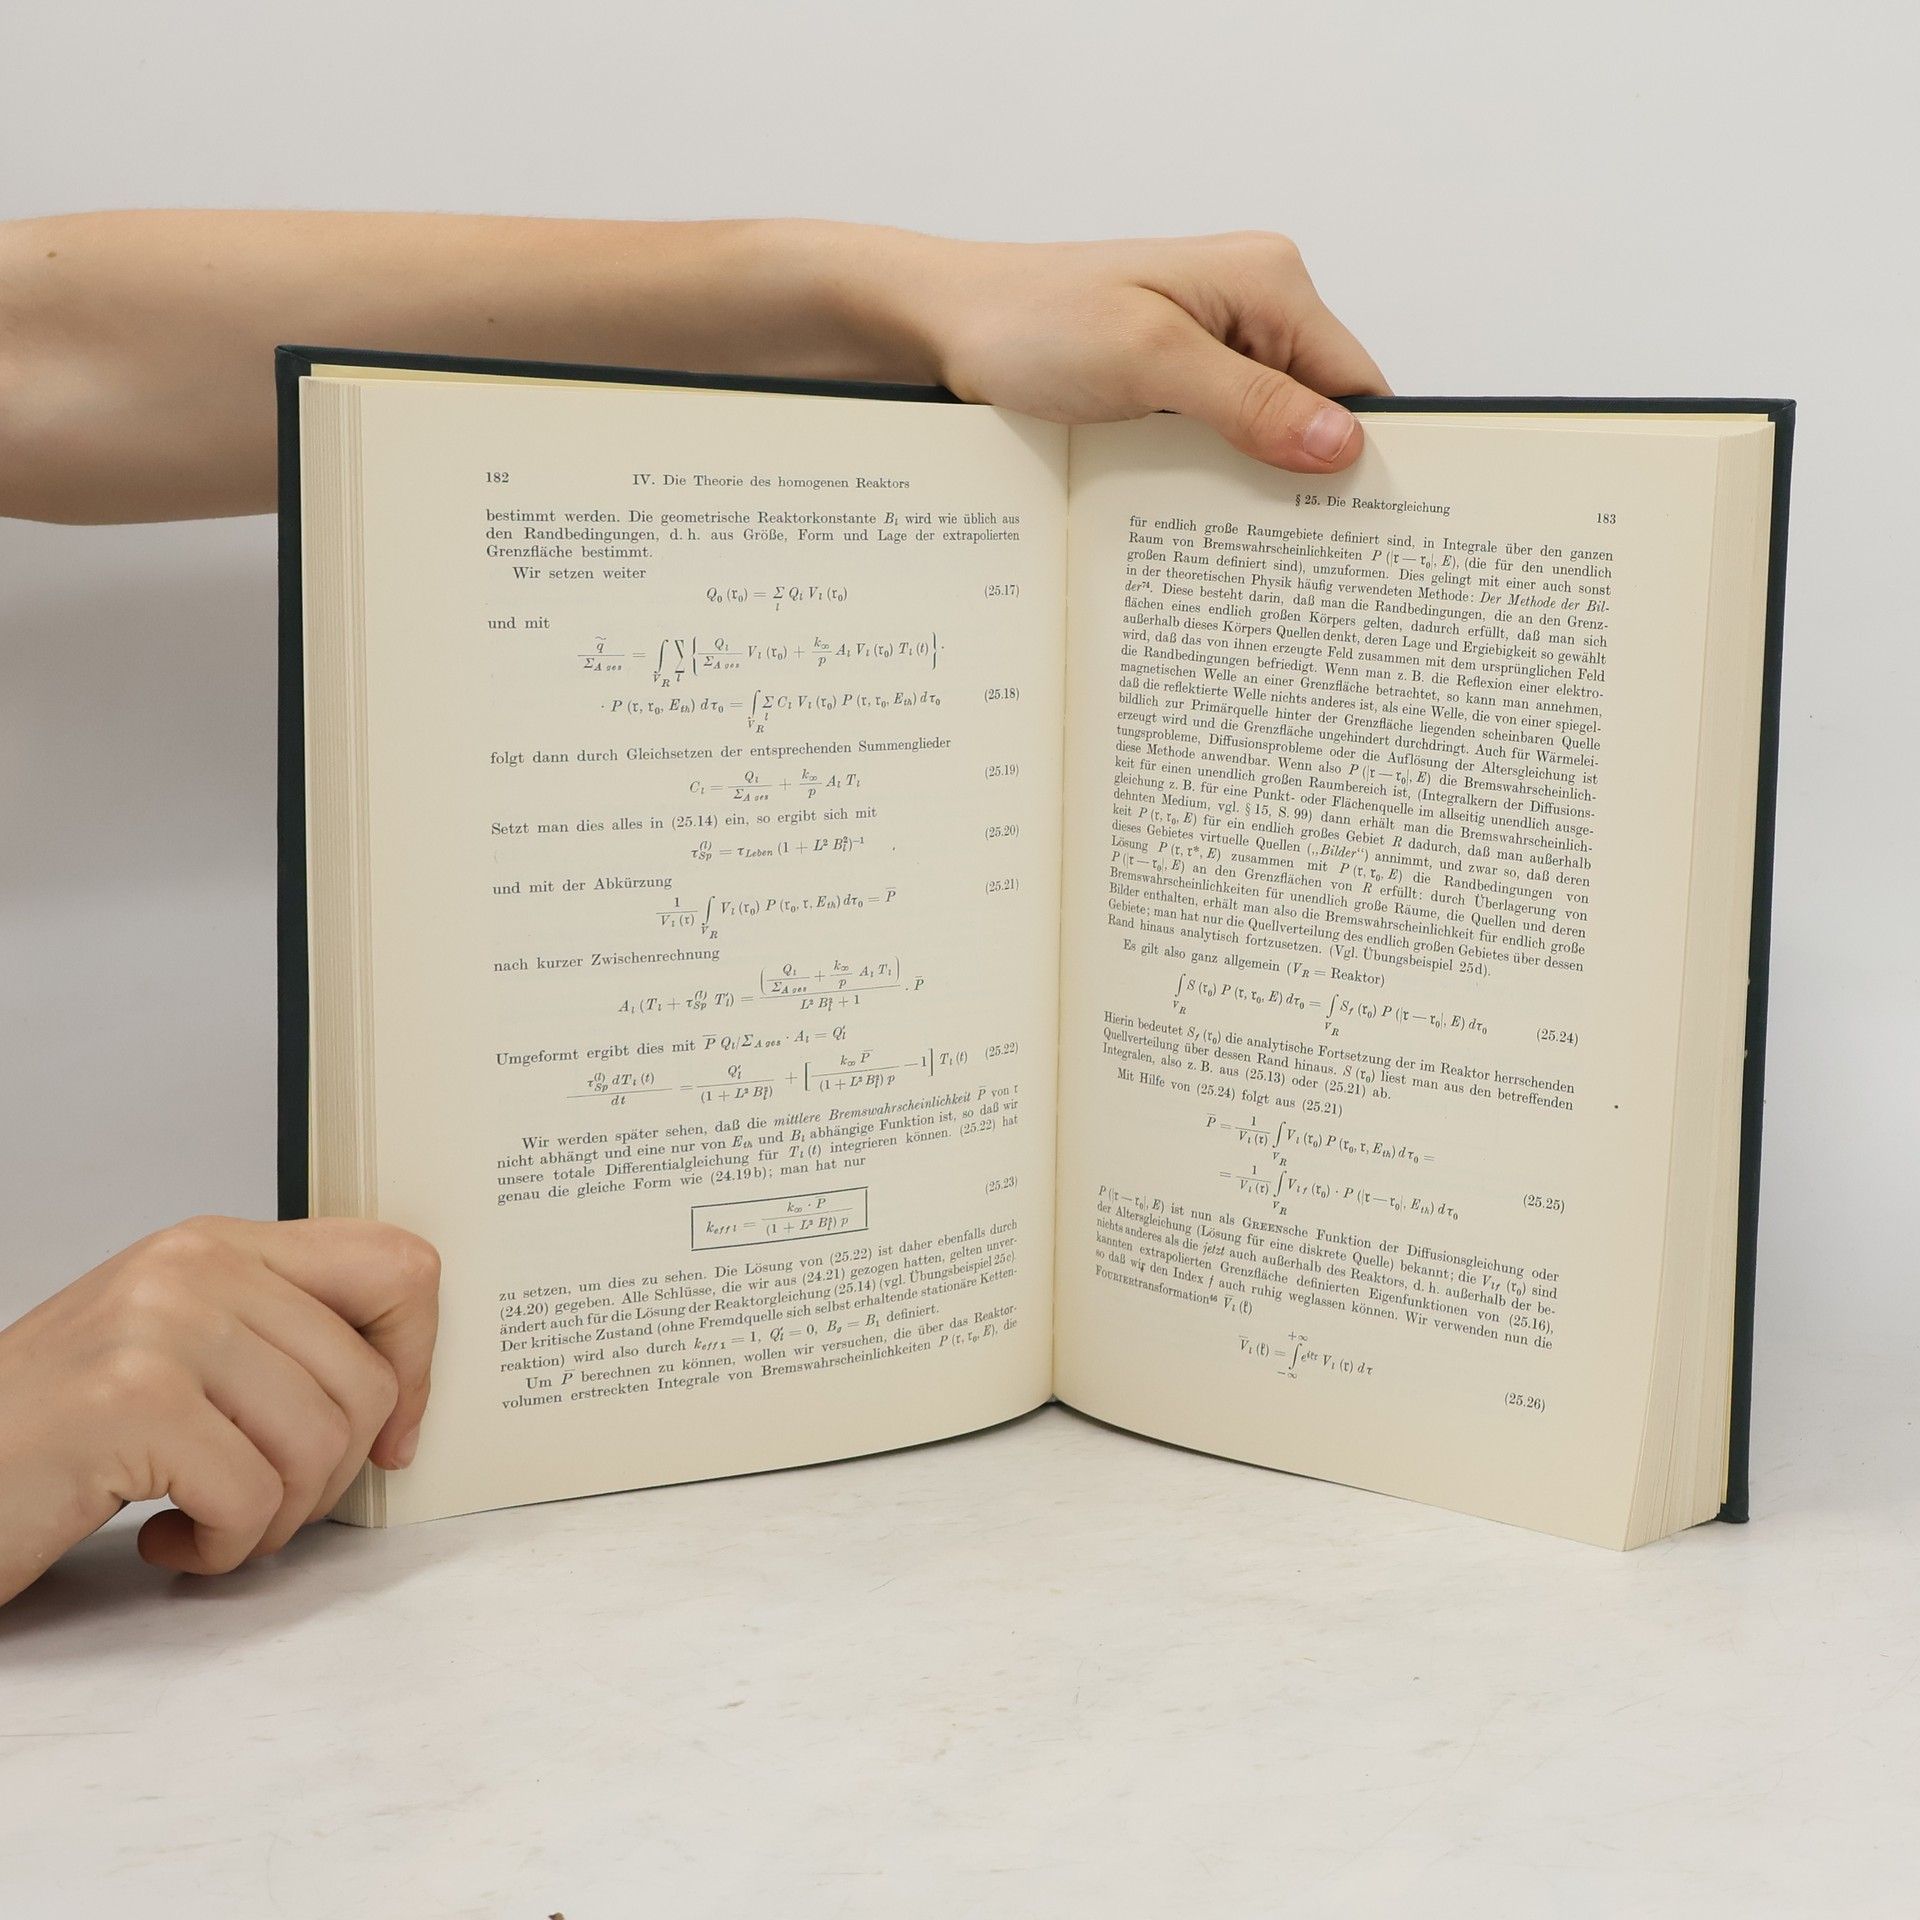 182
IV. Die Theorie des homogenen Reaktors
bestimmt werden. Die geometrische Reaktorkonstante B_l wird wie üblich aus
den Randbedingungen, d. h. aus Größe, Form und Lage der extrapolierten
Grenzfläche bestimmt.
Wir setzen weiter
Q₀ (𝔯₀) = Σ_l Q_l V_l (𝔯₀) (25.17)
und mit
q̃/Σ_{A ges} = ∫_{V_R} Σ_l {Q_l/Σ_{A ges} V_l (𝔯₀) + k_∞/p A_l V_l (𝔯₀) T_l (t)} ·
· P (𝔯, 𝔯₀, E_{th}) dτ₀ = ∫_{V_R} Σ_l C_l V_l (𝔯₀) P (𝔯, 𝔯₀, E_{th}) dτ₀ (25.18)
folgt dann durch Gleichsetzen der entsprechenden Summenglieder
C_l = Q_l/Σ_{A ges} + k_∞/p A_l T_l (25.19)
Setzt man dies alles in (25.14) ein, so ergibt sich mit
τ_{Sp}^{(l)} = τ_{Leben} (1 + L² B_l²)⁻¹ (25.20)
und mit der Abkürzung
1/V_l (𝔯) ∫_{V_R} V_l (𝔯₀) P (𝔯₀, 𝔯, E_{th}) dτ₀ = P̅ (25.21)
nach kurzer Zwischenrechnung
A_l (T_l + τ_{Sp}^{(l)} T_l′) = (Q_l/Σ_{A ges} + k_∞/p A_l T_l)/(L² B_l² + 1) · P̅
Umgeformt ergibt dies mit P̅ Q_l/Σ_{A ges} · A_l = Q_l′
τ_{Sp}^{(l)} dT_l (t)/dt = Q_l′/(1 + L² B_l²) + [k_∞ P̅/((1 + L² B_l²) p) − 1] T_l (t) (25.22)
Wir werden später sehen, daß die mittlere Bremswahrscheinlichkeit P̅ von 𝔯
nicht abhängt und eine nur von E_{th} und B_l abhängige Funktion ist, so daß wir
unsere totale Differentialgleichung für T_l (t) integrieren können. (25.22) hat
genau die gleiche Form wie (24.19b); man hat nur
k_{eff l} = k_∞ · P̅/((1 + L² B_l²) p) (25.23)
zu setzen, um dies zu sehen. Die Lösung von (25.22) ist daher ebenfalls durch
(24.20) gegeben. Alle Schlüsse, die wir aus (24.21) gezogen hatten, gelten unver-
ändert auch für die Lösung der Reaktorgleichung (25.14) (vgl. Übungsbeispiel 25c).
Der kritische Zustand (ohne Fremdquelle sich selbst erhaltende stationäre Ketten-
reaktion) wird also durch k_{eff 1} = 1, Q_l′ = 0, B_g = B₁ definiert.
Um P̅ berechnen zu können, wollen wir versuchen, die über das Reaktor-
volumen erstreckten Integrale von Bremswahrscheinlichkeiten P (𝔯, 𝔯₀, E), die
§ 25. Die Reaktorgleichung
183
für endlich große Raumgebiete definiert sind, in Integrale über den ganzen
Raum von Bremswahrscheinlichkeiten P (|𝔯 — 𝔯₀|, E), (die für den unendlich
großen Raum definiert sind), umzuformen. Dies gelingt mit einer auch sonst
in der theoretischen Physik häufig verwendeten Methode: Der Methode der Bil-
der⁷⁴. Diese besteht darin, daß man die Randbedingungen, die an den Grenz-
flächen eines endlich großen Körpers gelten, dadurch erfüllt, daß man sich
außerhalb dieses Körpers Quellen denkt, deren Lage und Ergiebigkeit so gewählt
wird, daß das von ihnen erzeugte Feld zusammen mit dem ursprünglichen Feld
die Randbedingungen befriedigt. Wenn man z. B. die Reflexion einer elektro-
magnetischen Welle an einer Grenzfläche betrachtet, so kann man annehmen,
daß die reflektierte Welle nichts anderes ist, als eine Welle, die von einer spiegel-
bildlich zur Primärquelle hinter der Grenzfläche liegenden scheinbaren Quelle
erzeugt wird und die Grenzfläche ungehindert durchdringt. Auch für Wärmelei-
tungsprobleme, Diffusionsprobleme oder die Auflösung der Altersgleichung ist
diese Methode anwendbar. Wenn also P (|𝔯 — 𝔯₀|, E) die Bremswahrscheinlich-
keit für einen unendlich großen Raumbereich ist, (Integralkern der Diffusions-
gleichung z. B. für eine Punkt- oder Flächenquelle im allseitig unendlich ausge-
dehnten Medium, vgl. § 15, S. 99) dann erhält man die Bremswahrscheinlich-
keit P (𝔯, 𝔯₀, E) für ein endlich großes Gebiet R dadurch, daß man außerhalb
dieses Gebietes virtuelle Quellen („Bilder“) annimmt, und zwar so, daß deren
Lösung P (𝔯, 𝔯*, E) zusammen mit P (𝔯, 𝔯₀, E) die Randbedingungen von
P (|𝔯 — 𝔯₀|, E) an den Grenzflächen von R erfüllt: durch Überlagerung von
Bremswahrscheinlichkeiten für unendlich große Räume, die Quellen und deren
Bilder enthalten, erhält man also die Bremswahrscheinlichkeit für endlich große
Gebiete; man hat nur die Quellverteilung des endlich großen Gebietes über dessen
Rand hinaus analytisch fortzusetzen. (Vgl. Übungsbeispiel 25d).
Es gilt also ganz allgemein (V_R = Reaktor)
∫_{V_R} S (𝔯₀) P (𝔯, 𝔯₀, E) dτ₀ = ∫_{V_R} S_f (𝔯₀) P (|𝔯 — 𝔯₀|, E) dτ₀ (25.24)
Hierin bedeutet S_f (𝔯₀) die analytische Fortsetzung der im Reaktor herrschenden
Quellverteilung über dessen Rand hinaus. S (𝔯₀) liest man aus den betreffenden
Integralen, also z. B. aus (25.13) oder (25.21) ab.
Mit Hilfe von (25.24) folgt aus (25.21)
P̅ = 1/V_l (𝔯) ∫_{V_R} V_l (𝔯₀) P (𝔯₀, 𝔯, E_{th}) dτ₀ =
= 1/V_l (𝔯) ∫_{V_R} V_{lf} (𝔯₀) · P (|𝔯 — 𝔯₀|, E_{th}) dτ₀ (25.25)
P (|𝔯 — 𝔯₀|, E) ist nun als GREENsche Funktion der Diffusionsgleichung oder
der Altersgleichung (Lösung für eine diskrete Quelle) bekannt; die V_{lf} (𝔯₀) sind
nichts anderes als die jetzt auch außerhalb des Reaktors, d. h. außerhalb der be-
kannten extrapolierten Grenzfläche definierten Eigenfunktionen von (25.16),
so daß wir den Index f auch ruhig weglassen können. Wir verwenden nun die
FOURIERtransformation⁴⁶ V̅_l (𝔨)
V̅_l (𝔨) = ∫_{−∞}^{+∞} e^{i𝔨𝔯} V_l (𝔯) dτ (25.26)